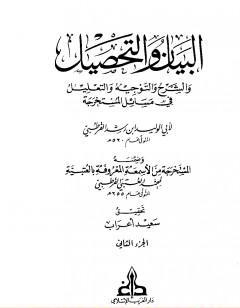 البيان والتحصيل
والشرح والتوجيه والتعليل
في مسائل المستخرجة
لأبي الوليد ابن رشد القرطبي
المتوفى عام ٥٢٠ هـ
وضمنه
المستخرجة من الأسمعة المعروفة بالعتبية
لمحمد العتبي القرطبي
المتوفى عام ٢٥٥ هـ
تحقيق
سعيد أعراب
الجزء الثاني
دار الغرب الإسلامي